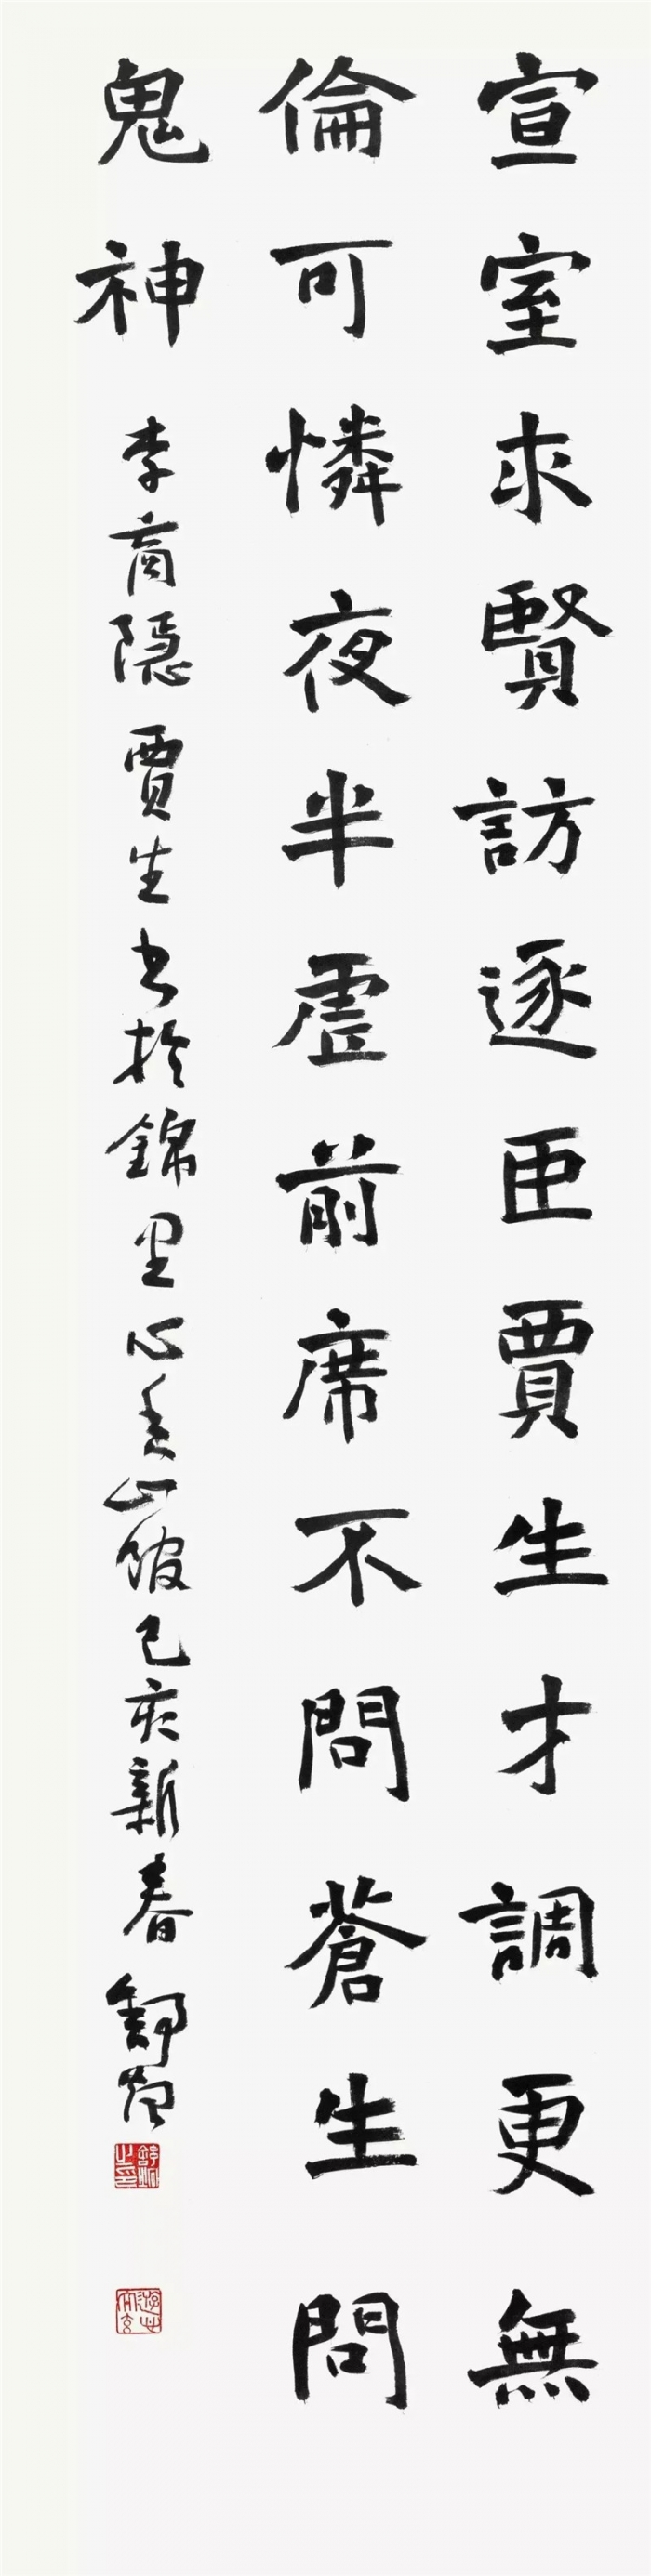 宣室求賢訪逐臣賈生才調更無
倫可憐夜半虛前席不問蒼生問
鬼神 李商隱賈生書於錦里心香山館己亥新春舒炯
舒炯之印